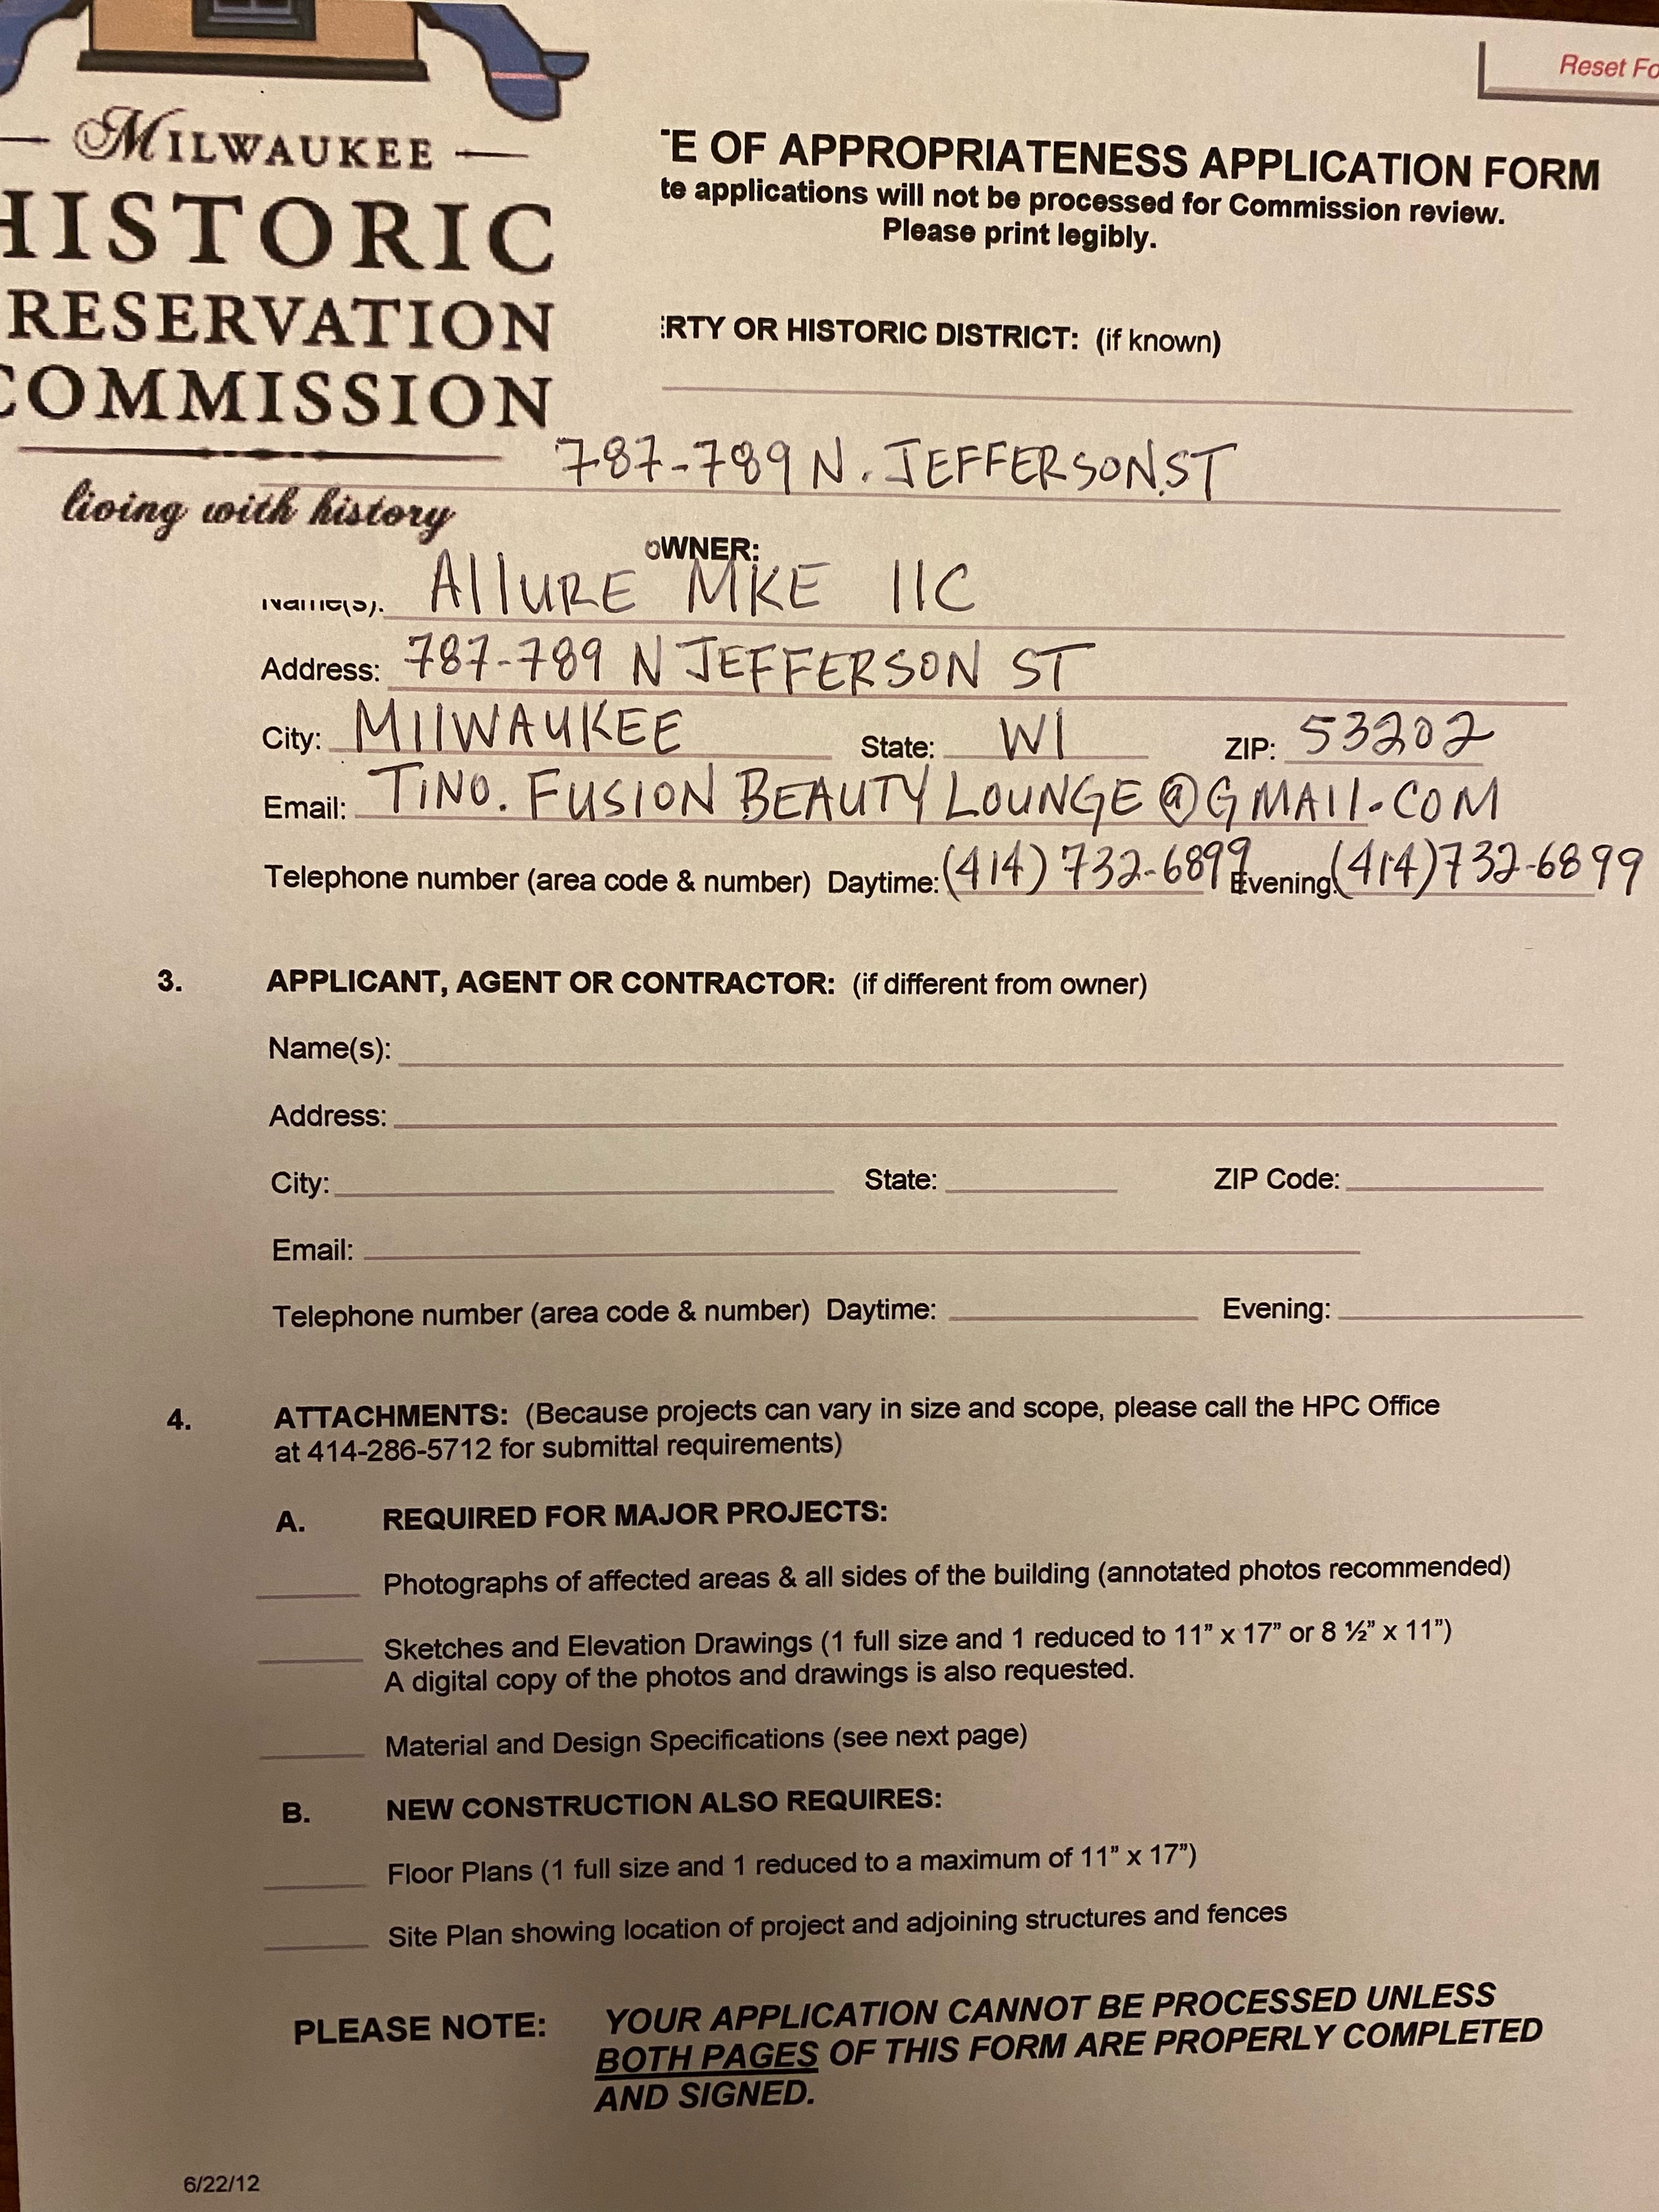 Reset Fo
MILWAUKEE
HISTORIC
RESERVATION
COMMISSION
living with history
E OF APPROPRIATENESS APPLICATION FORM
te applications will not be processed for Commission review.
Please print legibly.
ERTY OR HISTORIC DISTRICT: (if known)
787-789 N. JEFFERSON.ST
OWNER:
Name(s): AllURE MKE llC
Address: 787-789 N JEFFERSON ST
City: MIlWAUKEE State: WI ZIP: 53202
Email: TiNO. FUSION BEAUTY LOUNGE@GMAIl.COM
Telephone number (area code & number) Daytime: (414) 732-6899 Evening: (414)732-6899
3. APPLICANT, AGENT OR CONTRACTOR: (if different from owner)
Name(s):
Address:
City: State: ZIP Code:
Email:
Telephone number (area code & number) Daytime: Evening:
4. ATTACHMENTS: (Because projects can vary in size and scope, please call the HPC Office
at 414-286-5712 for submittal requirements)
A. REQUIRED FOR MAJOR PROJECTS:
Photographs of affected areas & all sides of the building (annotated photos recommended)
Sketches and Elevation Drawings (1 full size and 1 reduced to 11” x 17” or 8 ½” x 11”)
A digital copy of the photos and drawings is also requested.
Material and Design Specifications (see next page)
B. NEW CONSTRUCTION ALSO REQUIRES:
Floor Plans (1 full size and 1 reduced to a maximum of 11” x 17”)
Site Plan showing location of project and adjoining structures and fences
PLEASE NOTE: YOUR APPLICATION CANNOT BE PROCESSED UNLESS
BOTH PAGES OF THIS FORM ARE PROPERLY COMPLETED
AND SIGNED.
6/22/12